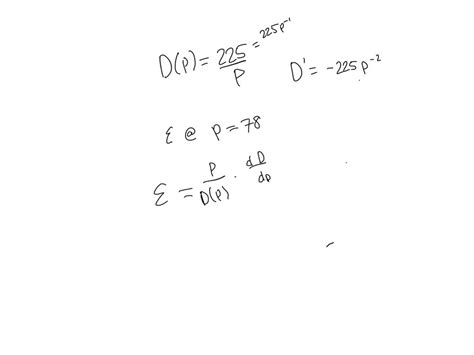 D(p) = 225/p = 225p⁻¹
D' = -225p⁻²
ε @ p = 78
ε = p/D(p) · dD/dp